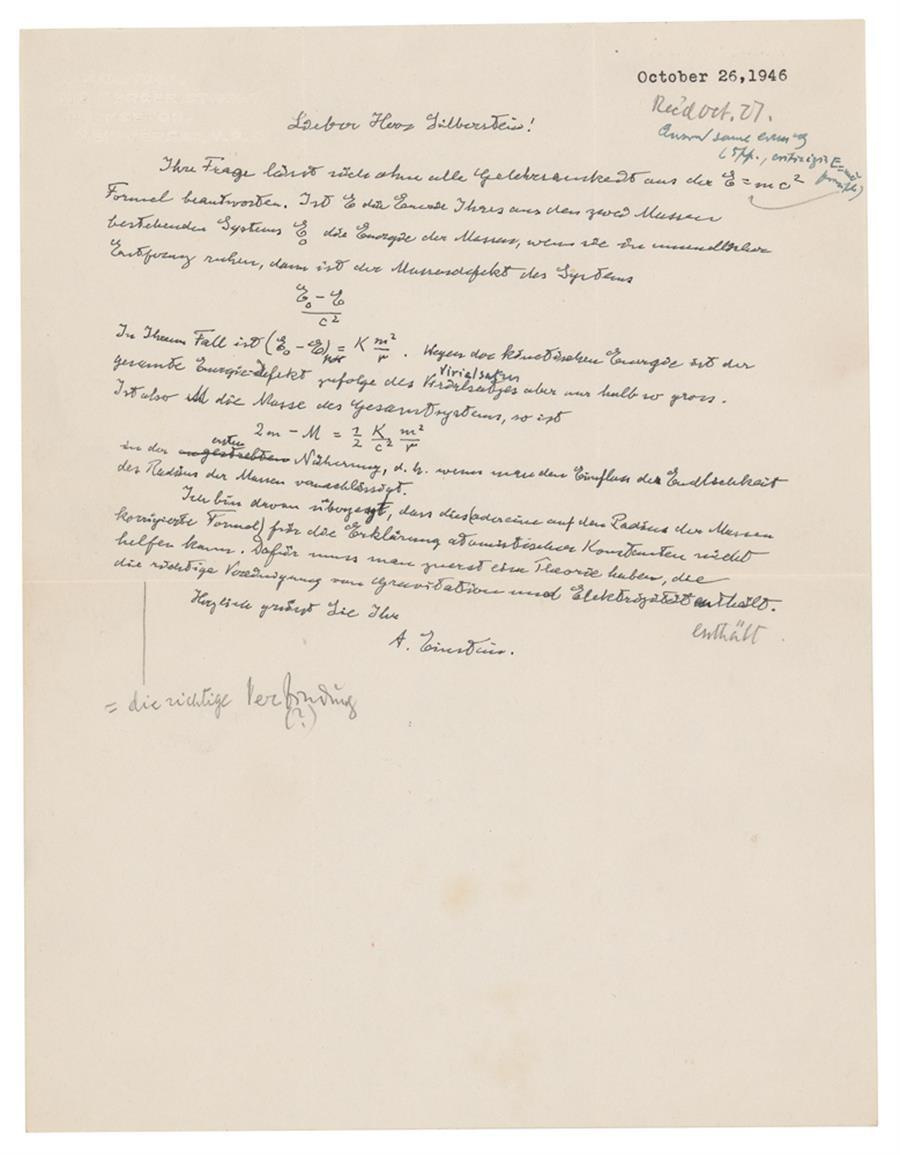 October 26, 1946
Rec'd Oct. 27.
Answ'd same evening
(5 pp., E=mc²
Lieber Herr Silberstein!
Ihre Frage lässt sich ohne alle Gelehrsamkeit aus der E = mc²
Formel beantworten. Ist E die Energie Ihres aus den zwei Massen
bestehenden Systems E₀ die Energie der Massen, wenn sie in unendlicher
Entfernung ruhen, dann ist der Massendefekt des Systems
(E₀ − E)/c²
In Ihrem Fall ist (E₀ − E) = K m²/r. Wegen der kinetischen Energie ist der
Virialsatzes
gesamte Energie-Defekt zufolge des Virialsatzes aber nur halb so gross.
Ist also M die Masse des Gesamtsystems, so ist
2m − M = 1/2 K/c² m²/r
ersten
in der angestrebten Näherung, d. h. wenn man den Einfluss der Endlichkeit
des Radius der Massen vernachlässigt.
Ich bin davon überzeugt, dass dies (oder eine auf den Radius der Massen
korrigierte Formel) für die Erklärung atomistischer Konstanten nicht
helfen kann. Dafür muss man zuerst eine Theorie haben, die
die richtige Vereinigung von Gravitation und Elektrizität enthält.
enthält
Herzlich grüsst Sie Ihr
A. Einstein.
= die richtige Verbindung
(?)